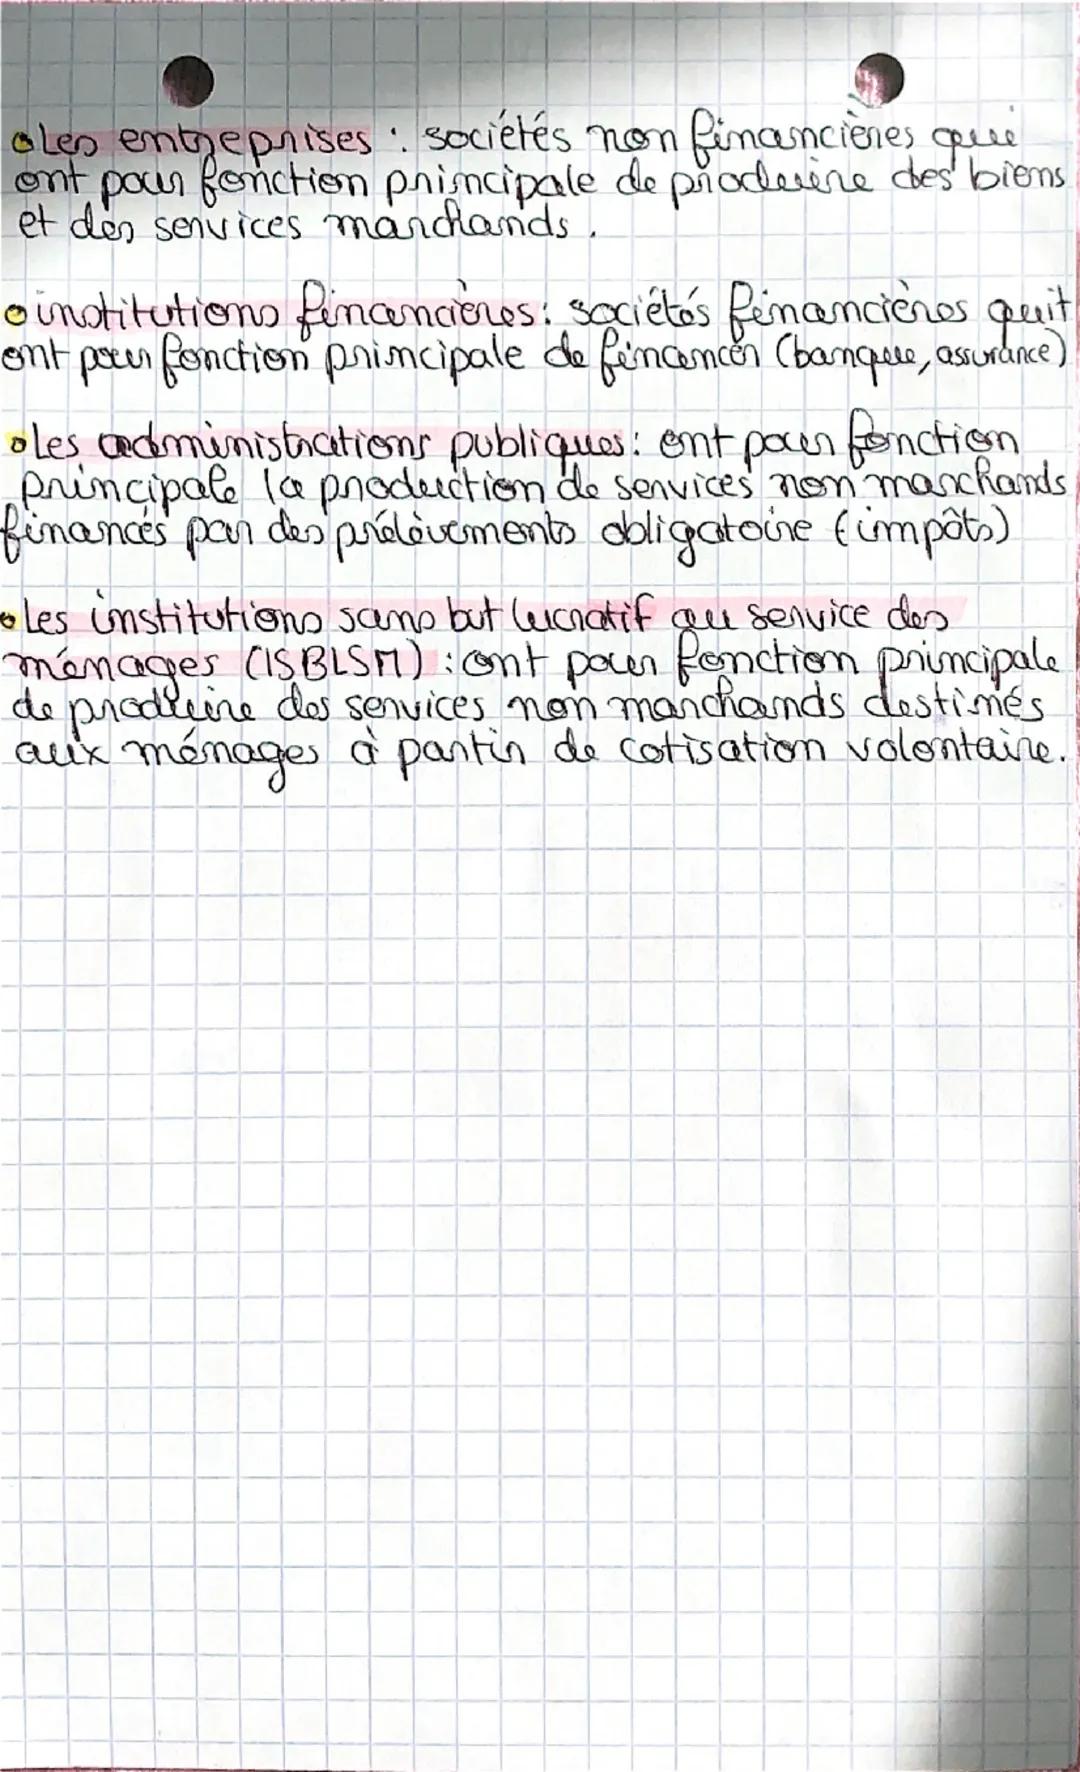 Les entreprises : sociétés non financières qui
ont pour fonction principale de produire des biens
et des services marchands.
institutions financières : sociétés financières quit
ont pour fonction principale de financer (banque, assurance)
Les administrations publiques : ont pour fonction
principale la production de services non marchands
financés par des prélèvements obligatoire (impôts)
Les institutions sans but lucratif au service des
ménages (ISBLSM) : ont pour fonction principale
de produire des services non marchands destinés
aux ménages à partir de cotisation volontaire.